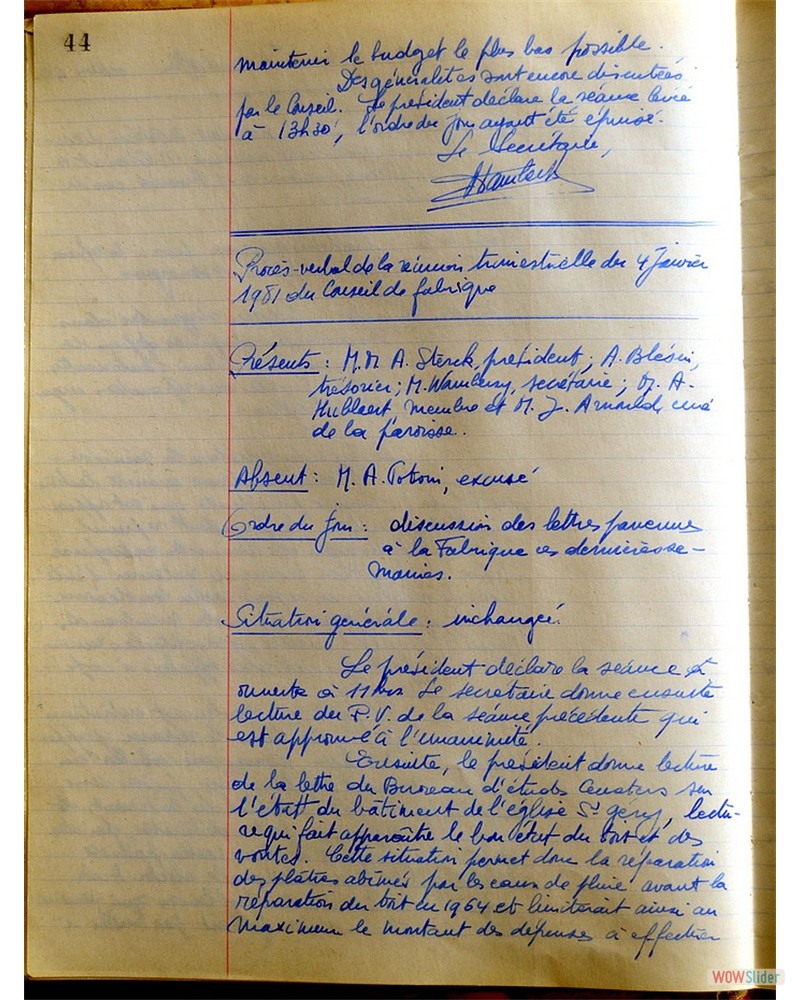 44
maintenir le budget le plus bas possible.
Des généralités sont encore discutées
par le Conseil. Le président déclare la séance levée
à 13h30', l'ordre du jour ayant été épuisé.
Le Secrétaire,
Procès-verbal de la réunion trimestrielle du 4 Janvier
1981 du Conseil de fabrique
Présents : M.M A. Sterck, président ; A. Blésin,
trésorier ; M. secrétaire ; M. A.
Hublaert membre et M. J. Arnould, curé
de la paroisse.
Absent : M. A. Potoni, excusé
Ordre du Jour : discussion des lettres parvenues
à la Fabrique ces dernières se-
maines.
Situation générale : inchangée.
Le président déclare la séance
ouverte à 11 hrs Le secrétaire donne ensuite
lecture du P.V. de la séance précédente qui
est approuvé à l'unanimité.
Ensuite, le président donne lecture
de la lettre du Bureau d'études sur
l'état du bâtiment de l'église St Géry, lectu-
re qui fait apparaître le bon état du toit et des
voûtes. Cette situation permet donc la réparation
des plâtres abîmés par les eaux de pluie avant la
réparation du toit en 1964 et limiterait ainsi au
maximum le montant des dépenses à effectuer
WOWSlider